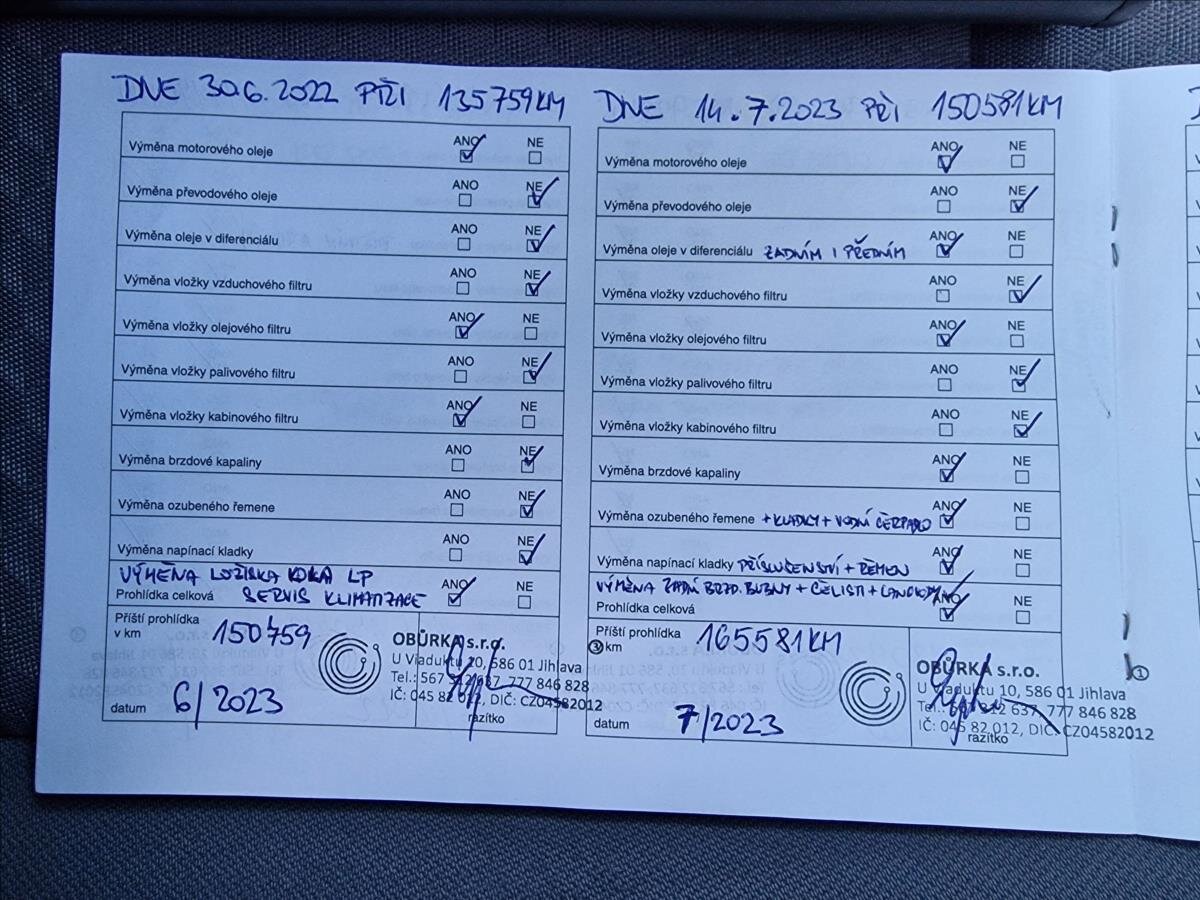 DNE 30.6.2022 PŘI 135759KM
Výměna motorového oleje ANO NE
Výměna převodového oleje ANO NE
Výměna oleje v diferenciálu ANO NE
Výměna vložky vzduchového filtru ANO NE
Výměna vložky olejového filtru ANO NE
Výměna vložky palivového filtru ANO NE
Výměna vložky kabinového filtru ANO NE
Výměna brzdové kapaliny ANO NE
Výměna ozubeného řemene ANO NE
Výměna napínací kladky ANO NE
VÝMĚNA LOŽISKA KOLA LP
Prohlídka celková SERVIS KLIMATIZACE ANO NE
Příští prohlídka
v km 150759
datum 6/2023
OBŮRKA s.r.o.
U Viaduktu 20, 586 01 Jihlava
Tel.: 567 312 637, 777 846 828
IČ: 045 82 012, DIČ: CZ04582012
razítko
DNE 14.7.2023 PŘI 150581KM
Výměna motorového oleje ANO NE
Výměna převodového oleje ANO NE
Výměna oleje v diferenciálu ZADNÍM I PŘEDNÍM ANO NE
Výměna vložky vzduchového filtru ANO NE
Výměna vložky olejového filtru ANO NE
Výměna vložky palivového filtru ANO NE
Výměna vložky kabinového filtru ANO NE
Výměna brzdové kapaliny ANO NE
Výměna ozubeného řemene +KLADKY+VODNÍ ČERPADLO ANO NE
Výměna napínací kladky PŘÍSLUŠENSTVÍ+ŘEMEN ANO NE
VÝMĚNA ZADNÍ BRZD. BUBNY + ČELISTI + LANOVODY
Prohlídka celková ANO NE
Příští prohlídka
km 165581KM
datum 7/2023
OBŮRKA s.r.o.
U Viaduktu 10, 586 01 Jihlava
Tel.: 567 312 637, 777 846 828
IČ: 045 82 012, DIČ: CZ04582012
razítko